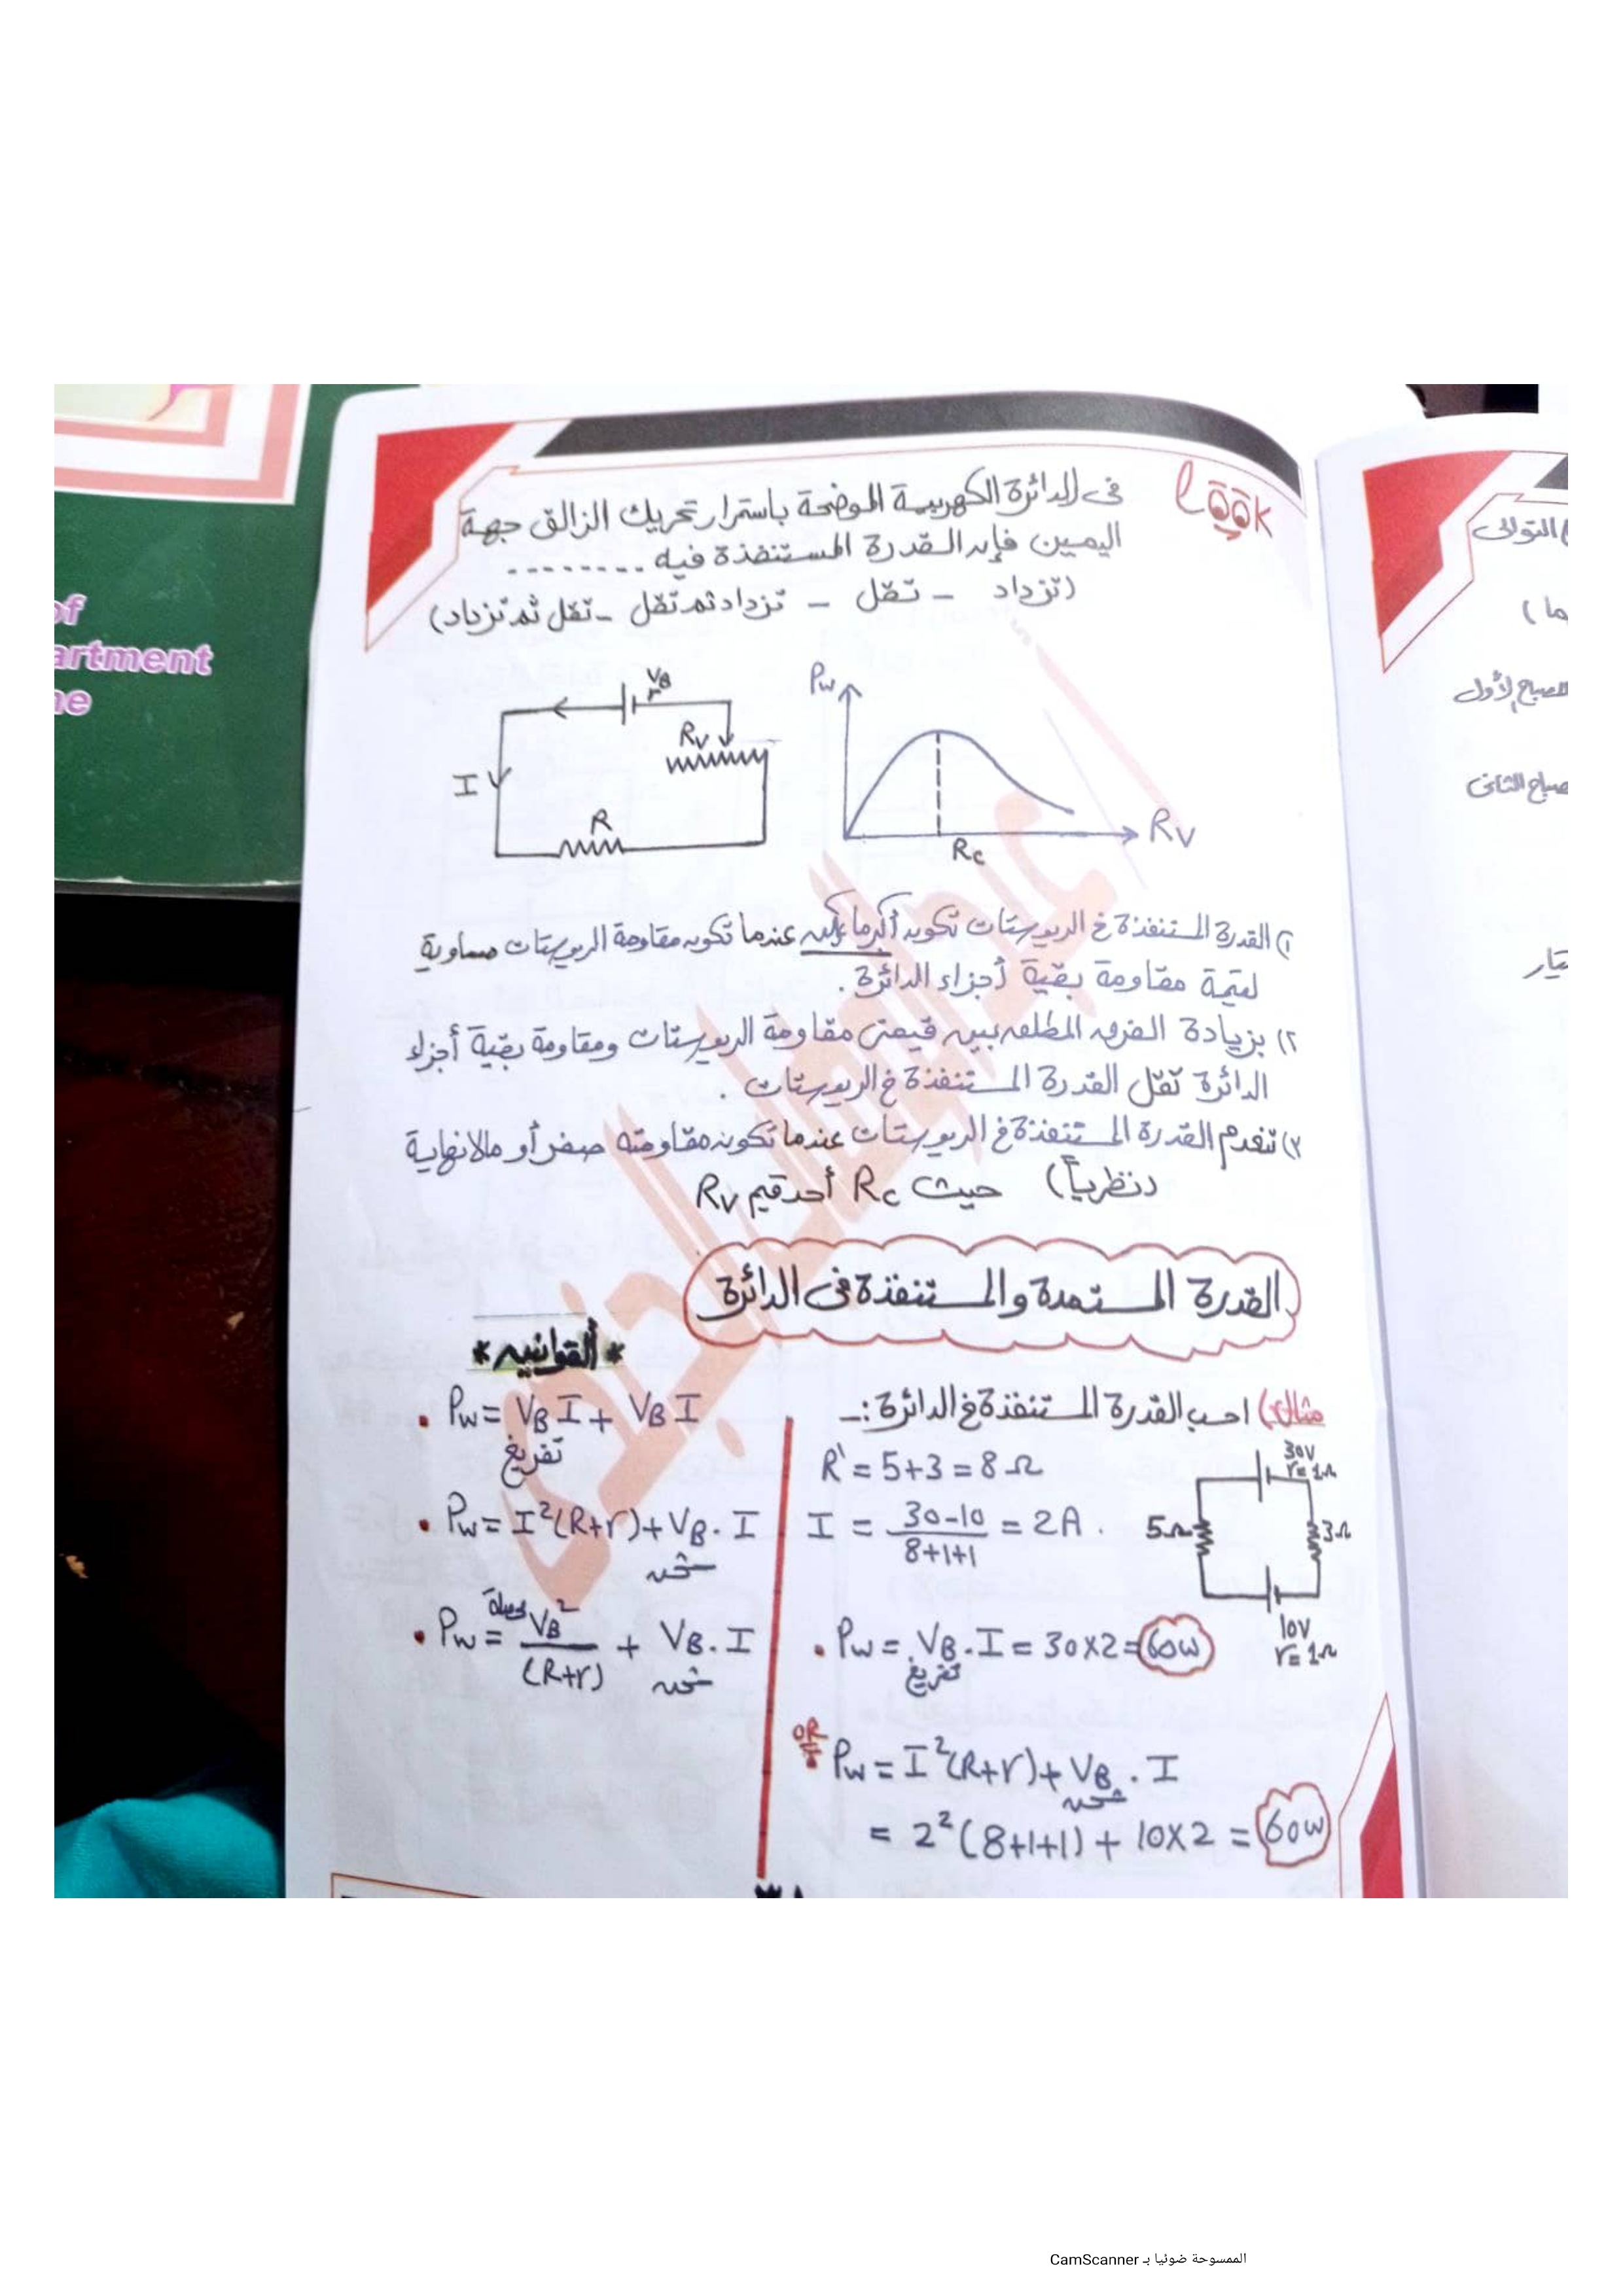 look
في الدائرة الكهربية الموضحة باستمرار تحريك الزالق جهة
اليمين فإن القدرة المستنفذة فيه ........
(تزداد - تقل - تزداد ثم تقل - تقل ثم تزداد)
VB
r
Rv
I
R
Pw
Rv
Rc
١) القدرة المستنفذة في الريوستات تكون أكبر ما يمكن عندما تكون مقاومة الريوستات مساوية
لقيمة مقاومة بقية أجزاء الدائرة .
٢) بزيادة الفرق المطلق بين قيمتى مقاومة الريوستات ومقاومة بقية أجزاء
الدائرة تقل القدرة المستنفذة في الريوستات .
٣) تنعدم القدرة المستنفذة في الريوستات عندما تكون مقاومته صفر أو مالانهاية
(نظرياً) حيث Rc أحد قيم Rv
القدرة المستمدة والمستنفذة في الدائرة
* القوانين *
• Pw = VB I + VB I
تفريغ
• Pw = I²(R+r) + VB . I
شحن
• Pw = VB² / (R+r) + VB . I
شحن
مثال) احسب القدرة المستنفذة في الدائرة :-
R' = 5+3 = 8 Ω
I = 30-10 / 8+1+1 = 2A .
30V
r= 1Ω
5Ω
3Ω
10V
r= 1Ω
• Pw = VB . I = 30x2 = 60w
تفريغ
OR
Pw = I²(R+r) + VB . I
شحن
= 2² (8+1+1) + 10x2 = 60w
of
artment
ne
التوالى
ما )
المصباح الأول
صباح الثانى
تيار
الممسوحة ضوئيا بـ CamScanner